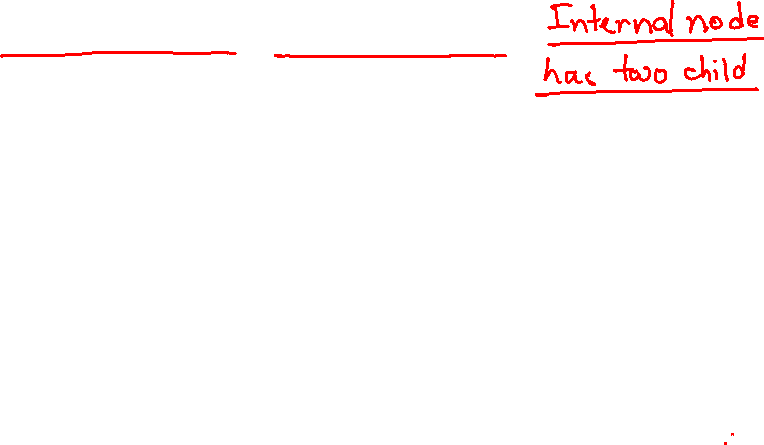 Internal node
has two child